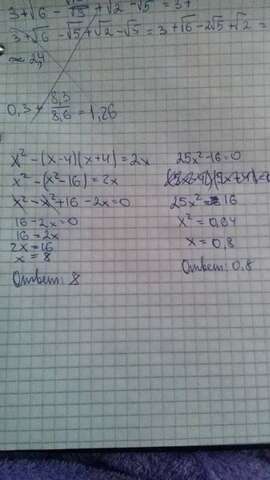 3+√6 - √5 + √2 - √5 = 3+
3+√6 - √5 + √2 - √5 = 3 + √6 - 2√5 + √2 =
0,3 + 8,3/8,6 = 1,26
x² - (x-4)(x+4) = 2x
x² - (x²-16) = 2x
x² - x² + 16 - 2x = 0
16 - 2x = 0
16 = 2x
2x = 16
x = 8
Ответ: 8
25x² - 16 = 0
25x² = 16
x² = 0,64
x = 0,8
Ответ: 0,8